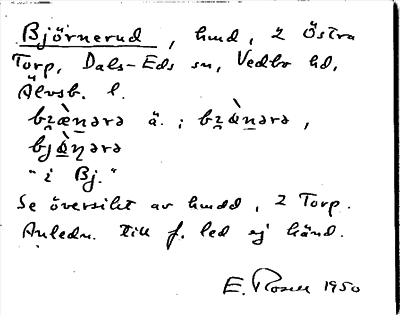 Björnerud, hmd, 2 Östra
Torp, Dals-Eds sn, Vedbo hd,
Älvsb. l.
bʒæ̀nərə ä. ; bʒɑ̀nərə,
bjɑ̀ŋərə
"i Bj."
Se översikt av hmdd, 2 Torp.
Anledn. till f. led ej känd.
E. Rosell 1950